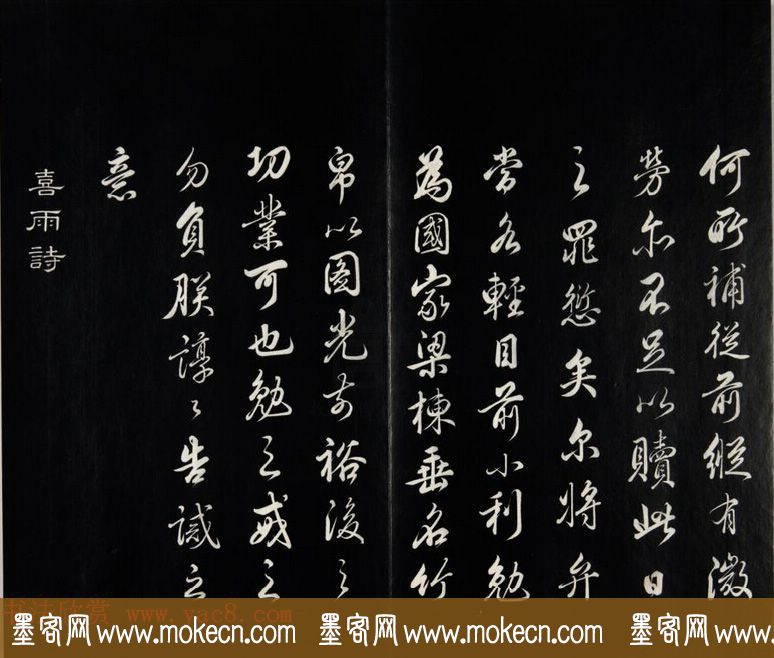 何所補從前縱有微
勞亦不足以贖此日
之罪愆矣尔將弁
當各輕目前小利勉
為國家梁棟垂名竹
帛以圖光前裕後之
功業可也勉之戒之
勿負朕諄〻告誡之
意
喜雨詩
书法欣赏 www.yac8.com
墨客网 www.mokecn.com 墨客网 www.mokecn.com 墨客网 www.mo